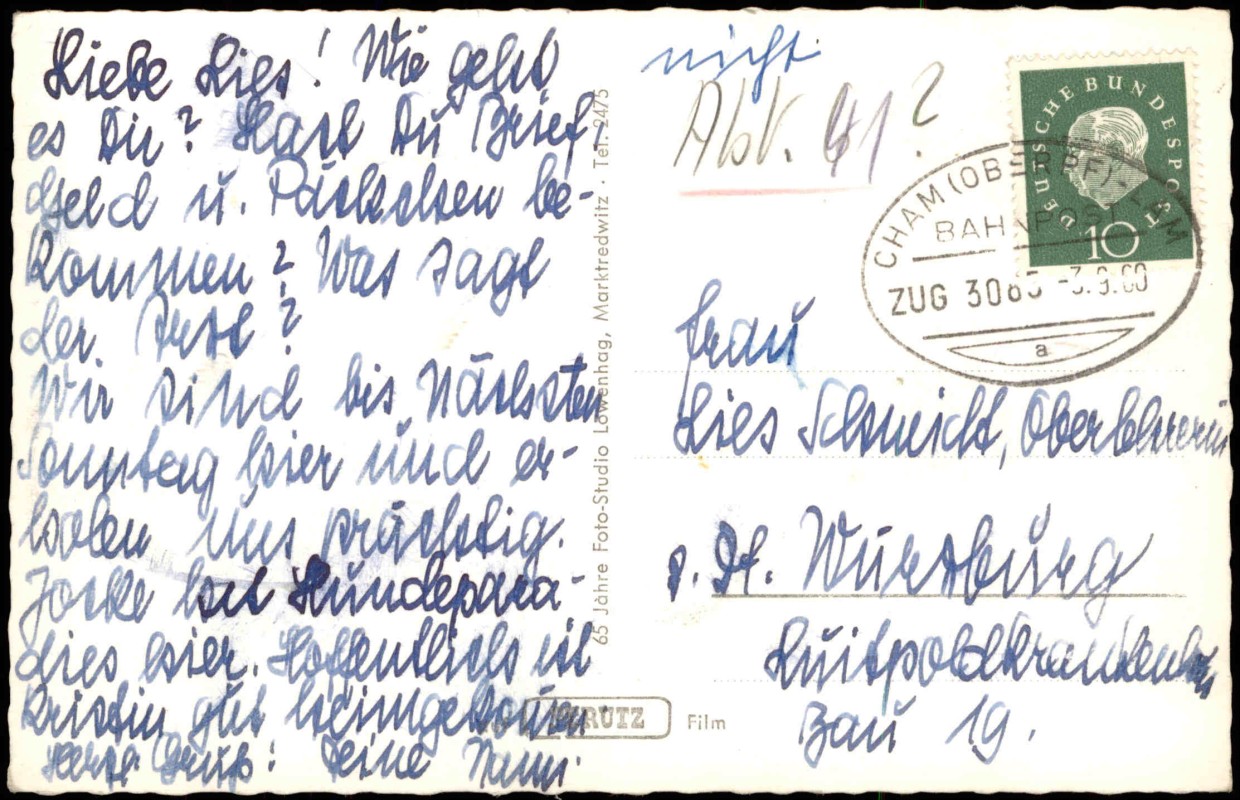 Liebe Lies! Wie geht
es Dir? Hast Du Brief,
Geld u. Päckchen be-
kommen? Was sagt
der Arzt?
Wir sind bis nächsten
Sonntag hier und er-
holen uns prächtig.
Jocke hat Hundepara-
dies hier. Hoffentlich ist
Kristin gut heimgekommen
Herzl. Gruß: Deine Nanni.
65 Jahre Foto-Studio Löwenhag, Marktredwitz · Tel. 2475
PERUTZ Film
nicht
Abt. 41?
DEUTSCHE BUNDESPOST
10
CHAM (OBERPF)-LAM
BAHNPOST
ZUG 3083 -3.9.60
a
Frau
Lies Schneidt, Oberlehrerin
z. Zt. Würzburg
Luitpoldkrankenhs
Bau 19.